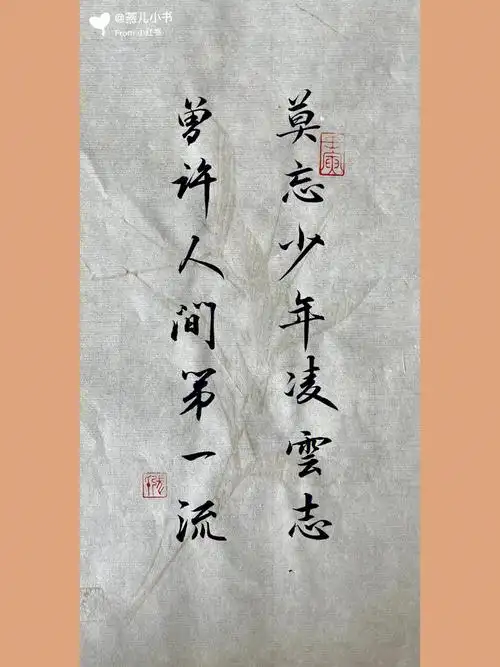 @燕儿小书
From 小红书
莫忘少年凌雲志
曾许人间第一流